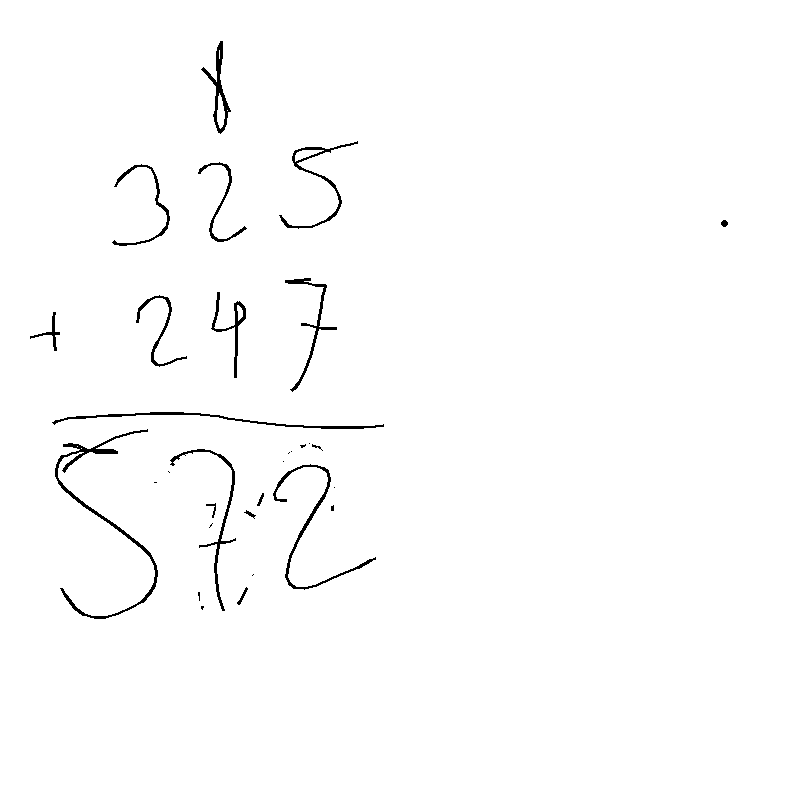 325
+ 247
572